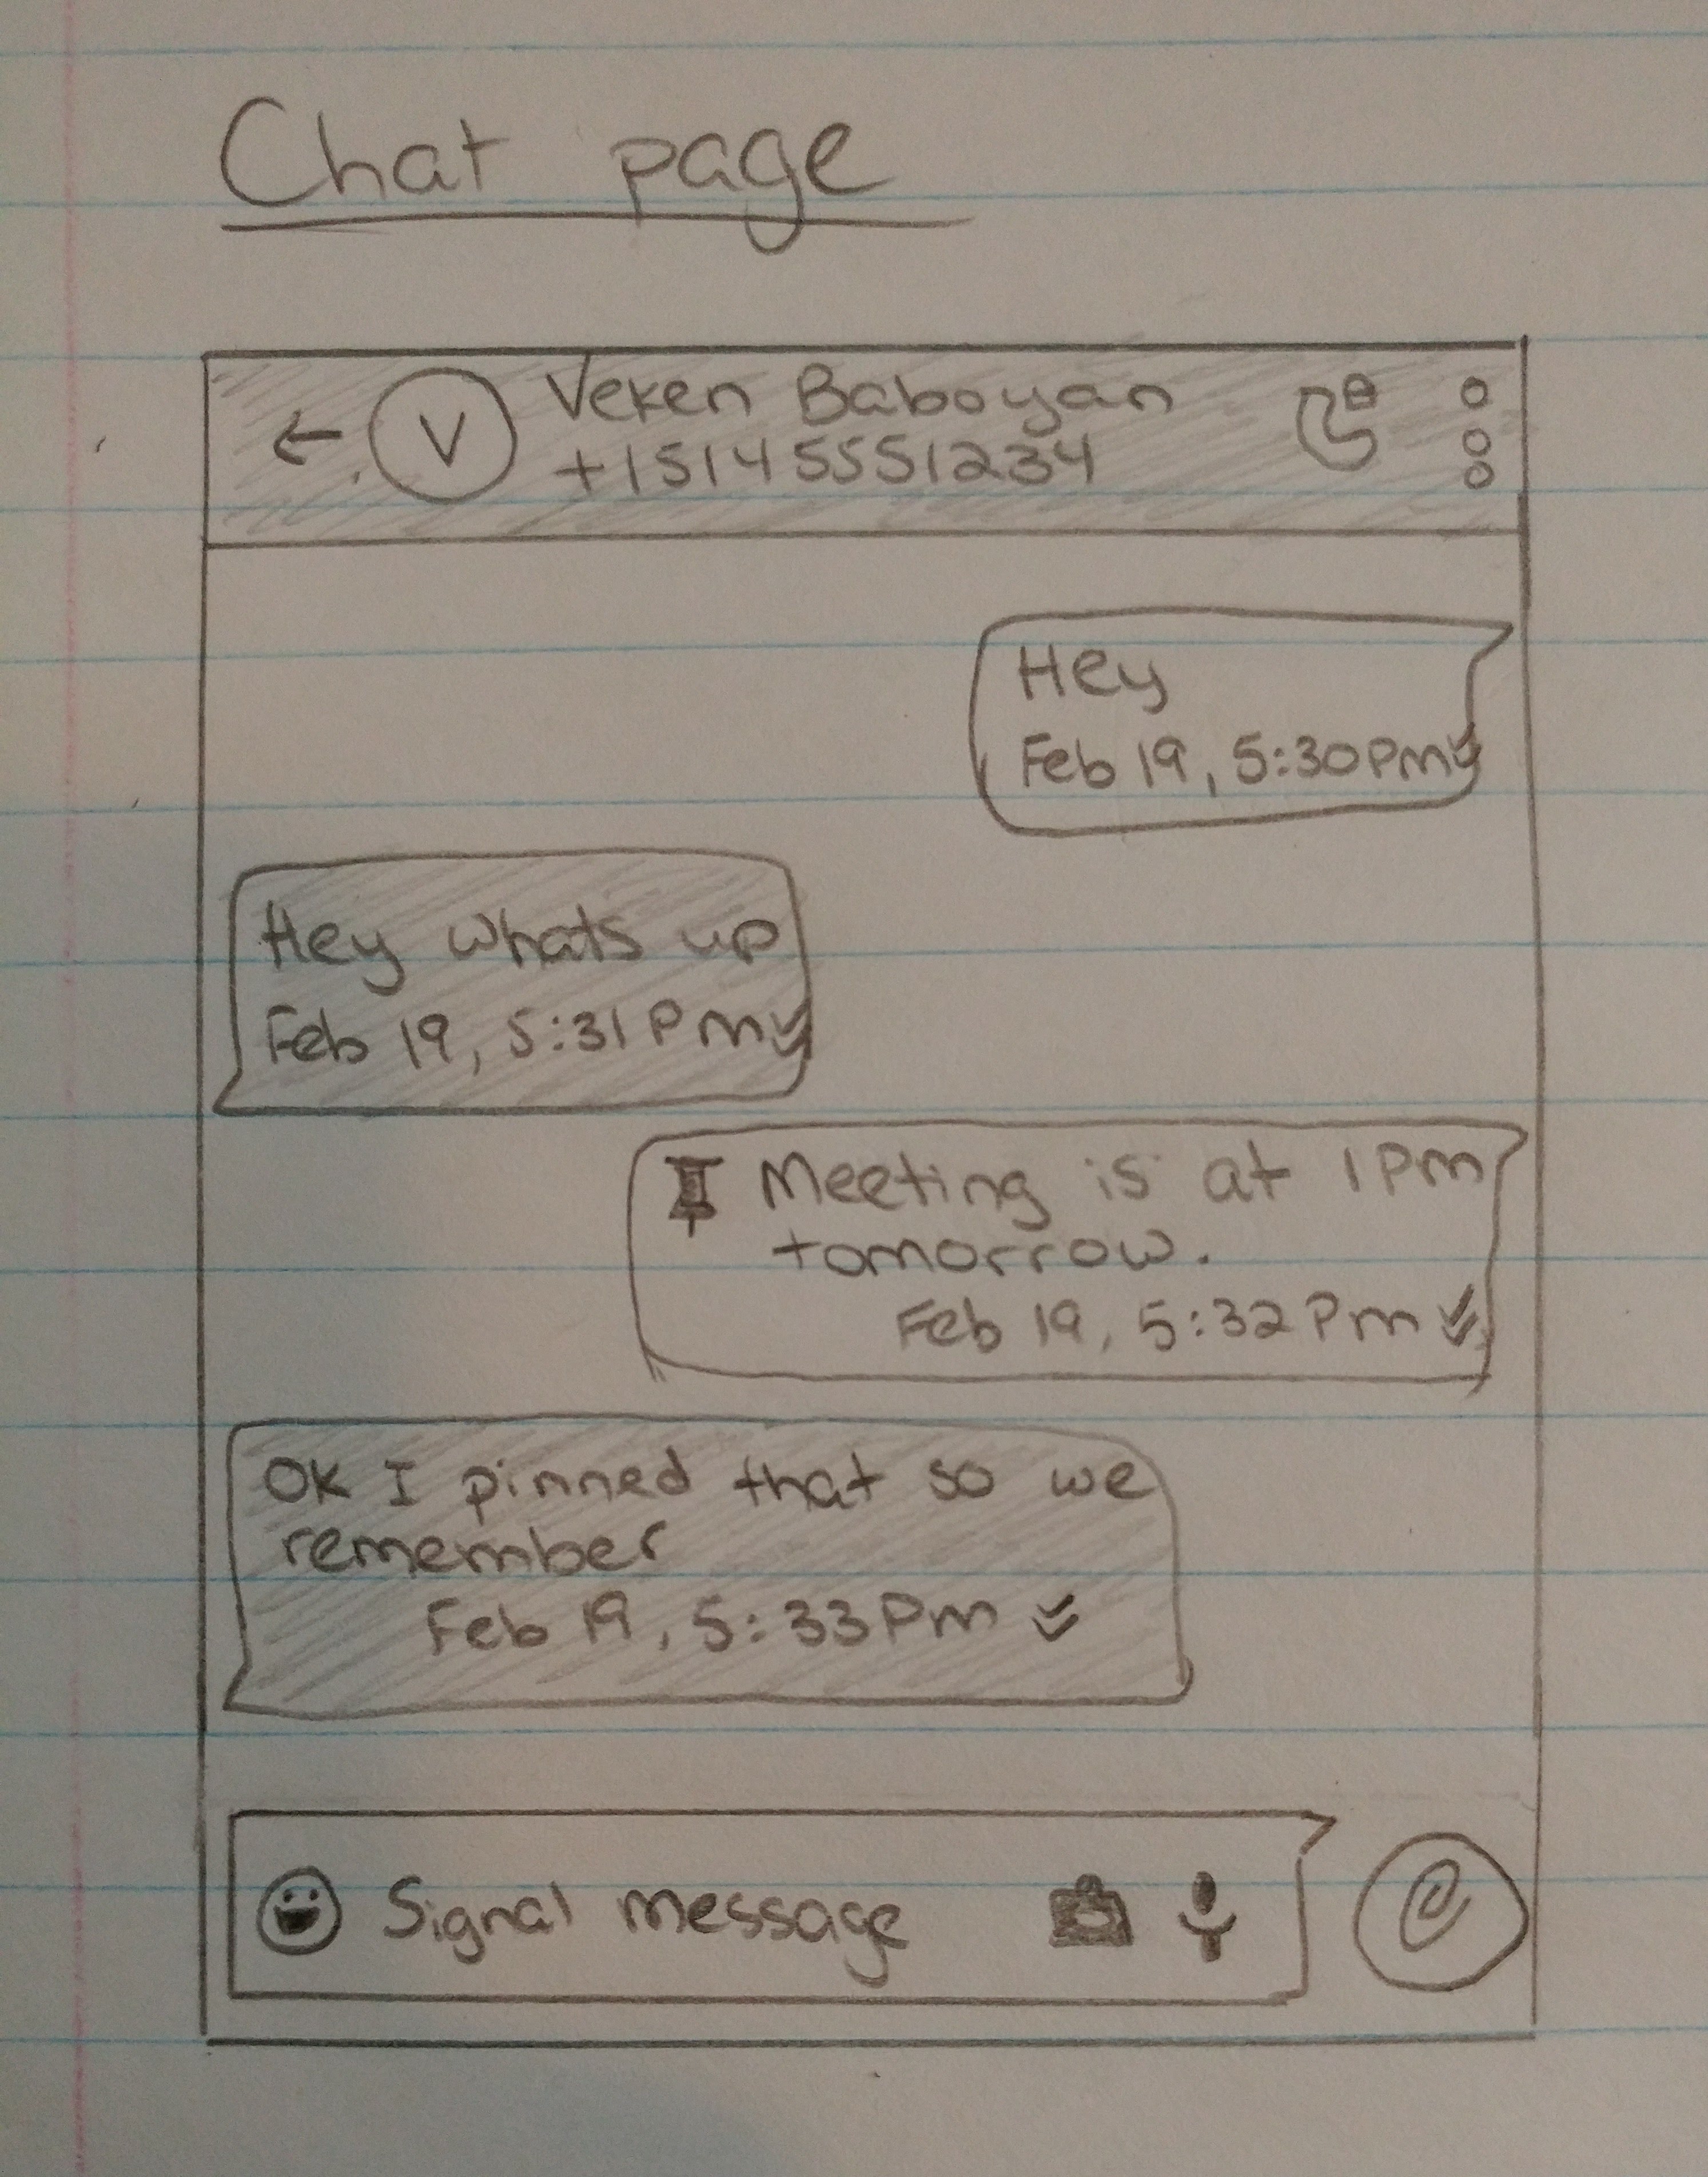 Chat page
V
Veken Baboyan
+15145551234
Hey
Feb 19, 5:30pm
Hey whats up
Feb 19, 5:31pm
Meeting is at 1pm
tomorrow.
Feb 19, 5:32pm
OK I pinned that so we
remember
Feb 19, 5:33pm
Signal message